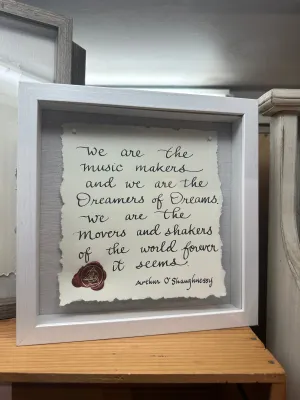 We are the
music makers
and we are the
Dreamers of Dreams.
We are the
Movers and shakers
of the world forever
it seems
Arthur O'Shaughnessy